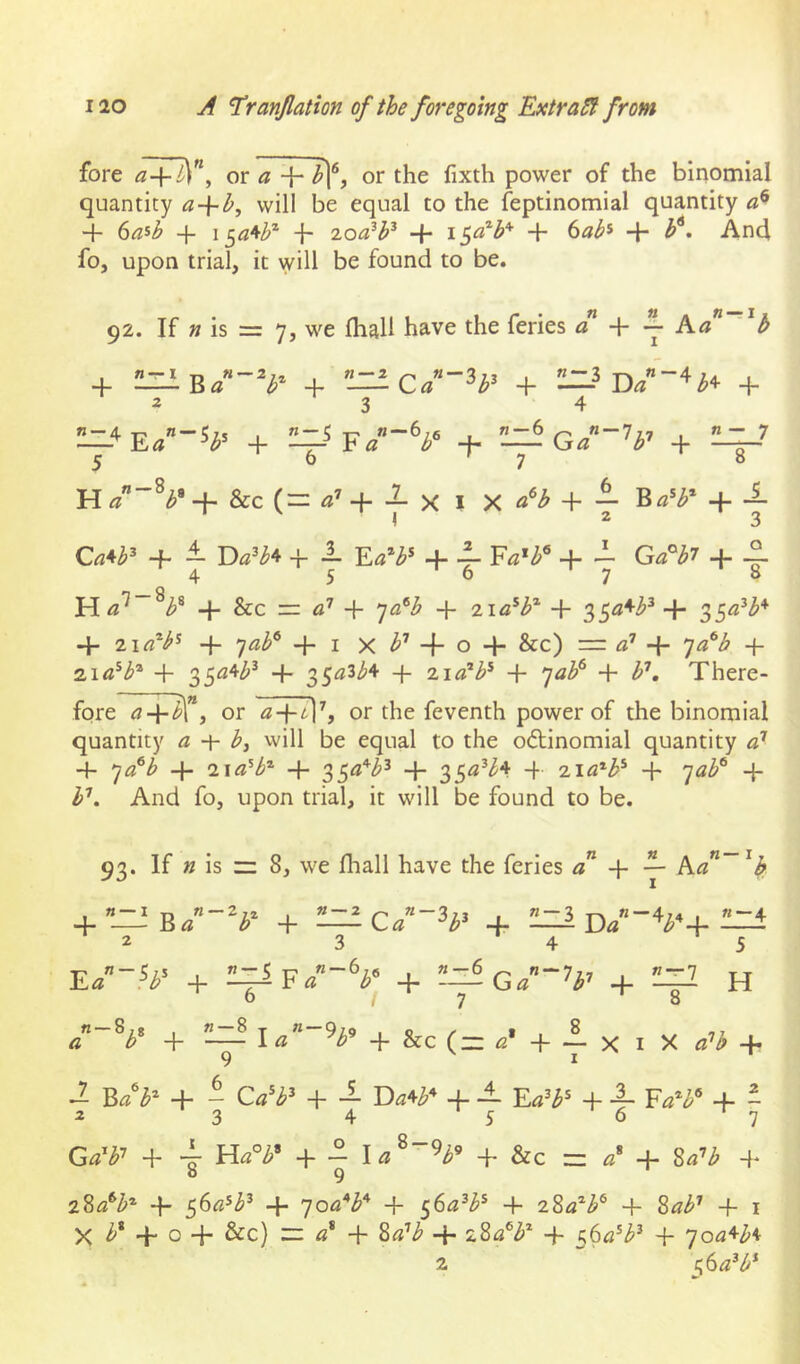 120 A Tranſlation of the foregoing Extract from
fore a+b)ⁿ, or a + b)⁶, or the ſixth power of the binomial
quantity a+b, will be equal to the ſeptinomial quantity a⁶
+ 6a⁵b + 15a⁴b² + 20a³b³ + 15a²b⁴ + 6ab⁵ + b⁶. And
ſo, upon trial, it will be found to be.
92. If n is = 7, we ſhall have the ſeries aⁿ + n/1 Aaⁿ⁻¹b
+ n−1/2 Baⁿ⁻²b² + n−2/3 Caⁿ⁻³b³ + n−3/4 Daⁿ⁻⁴b⁴ +
n−4/5 Eaⁿ⁻⁵b⁵ + n−5/6 Faⁿ⁻⁶b⁶ + n−6/7 Gaⁿ⁻⁷b⁷ + n−7/8
Haⁿ⁻⁸b⁸ + &c (= a⁷ + 7/1 × 1 × a⁶b + 6/2 Ba⁵b² + 5/3
Ca⁴b³ + 4/4 Da³b⁴ + 3/5 Ea²b⁵ + 2/6 Fa¹b⁶ + 1/7 Ga⁰b⁷ + 0/8
Ha⁷⁻⁸b⁸ + &c = a⁷ + 7a⁶b + 21a⁵b² + 35a⁴b³ + 35a³b⁴
+ 21a²b⁵ + 7ab⁶ + 1 × b⁷ + 0 + &c) = a⁷ + 7a⁶b +
21a⁵b² + 35a⁴b³ + 35a³b⁴ + 21a²b⁵ + 7ab⁶ + b⁷. There-
fore a+b)ⁿ, or a+b)⁷, or the ſeventh power of the binomial
quantity a + b, will be equal to the octinomial quantity a⁷
+ 7a⁶b + 21a⁵b² + 35a⁴b³ + 35a³b⁴ + 21a²b⁵ + 7ab⁶ +
b⁷. And ſo, upon trial, it will be found to be.
93. If n is = 8, we ſhall have the ſeries aⁿ + n/1 Aaⁿ⁻¹b
+ n−1/2 Baⁿ⁻²b² + n−2/3 Caⁿ⁻³b³ + n−3/4 Daⁿ⁻⁴b⁴ + n−4/5
Eaⁿ⁻⁵b⁵ + n−5/6 Faⁿ⁻⁶b⁶ + n−6/7 Gaⁿ⁻⁷b⁷ + n−7/8 H
aⁿ⁻⁸b⁸ + n−8/9 Iaⁿ⁻⁹b⁹ + &c (= a⁸ + 8/1 × 1 × a⁷b +
7/2 Ba⁶b² + 6/3 Ca⁵b³ + 5/4 Da⁴b⁴ + 4/5 Ea³b⁵ + 3/6 Fa²b⁶ + 2/7
Ga¹b⁷ + 1/8 Ha⁰b⁸ + 0/9 Ia⁸⁻⁹b⁹ + &c = a⁸ + 8a⁷b +
28a⁶b² + 56a⁵b³ + 70a⁴b⁴ + 56a³b⁵ + 28a²b⁶ + 8ab⁷ + 1
× b⁸ + 0 + &c) = a⁸ + 8a⁷b + 28a⁶b² + 56a⁵b³ + 70a⁴b⁴
2 56a³b⁵